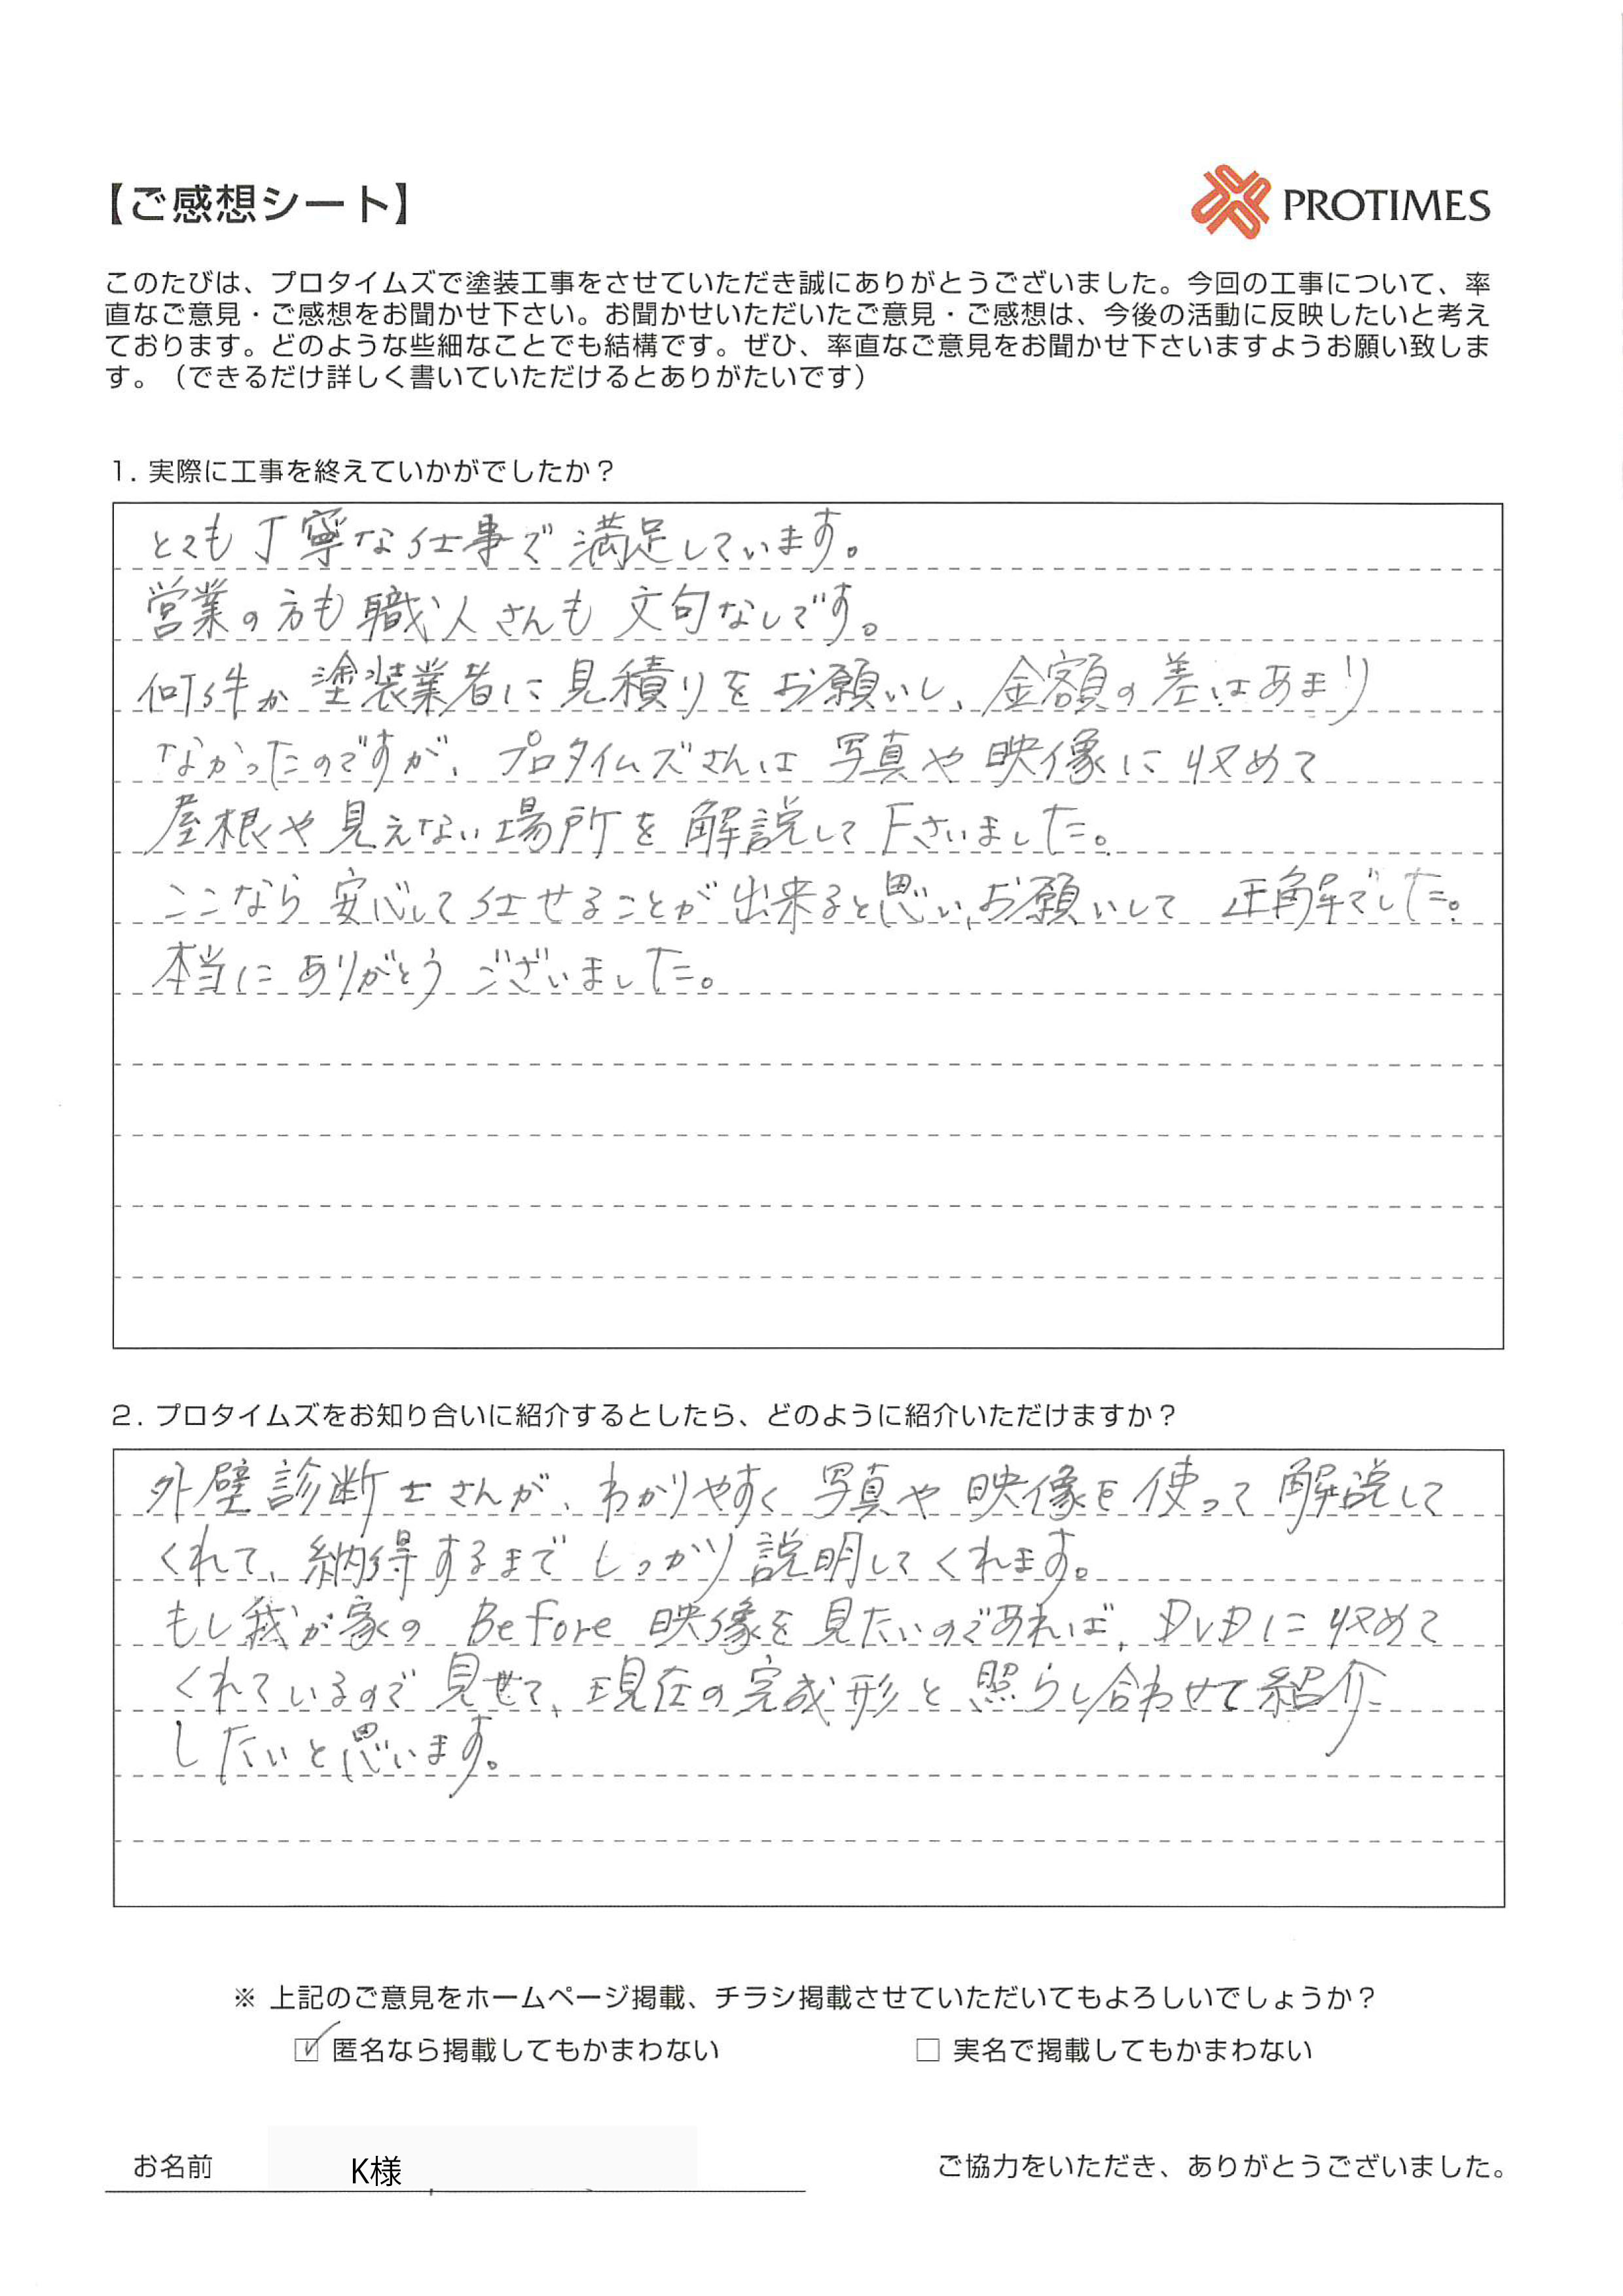 【ご感想シート】
PROTIMES
このたびは、プロタイムズで塗装工事をさせていただき誠にありがとうございました。今回の工事について、率
直なご意見・ご感想をお聞かせ下さい。お聞かせいただいたご意見・ご感想は、今後の活動に反映したいと考え
ております。どのような些細なことでも結構です。ぜひ、率直なご意見をお聞かせ下さいますようお願い致しま
す。（できるだけ詳しく書いていただけるとありがたいです）
1. 実際に工事を終えていかがでしたか？
とても丁寧な仕事で満足しています。
営業の方も職人さんも文句なしです。
何件か塗装業者に見積りをお願いし、金額の差はあまり
なかったのですが、プロタイムズさんは写真や映像に収めて
屋根や見えない場所を解説して下さいました。
ここなら安心して仕せることが出来ると思い、お願いして正解でした。
本当にありがとうございました。
2. プロタイムズをお知り合いに紹介するとしたら、どのように紹介いただけますか？
外壁診断士さんが、わかりやすく写真や映像を使って解説して
くれて、納得するまでしっかり説明してくれます。
もし我が家のBefore映像を見たいのであれば、DVDに収めて
くれているので見せて、現在の完成形と照らし合わせて紹介
したいと思います。
※ 上記のご意見をホームページ掲載、チラシ掲載させていただいてもよろしいでしょうか？
☑ 匿名なら掲載してもかまわない □ 実名で掲載してもかまわない
お名前 K様 ご協力をいただき、ありがとうございました。